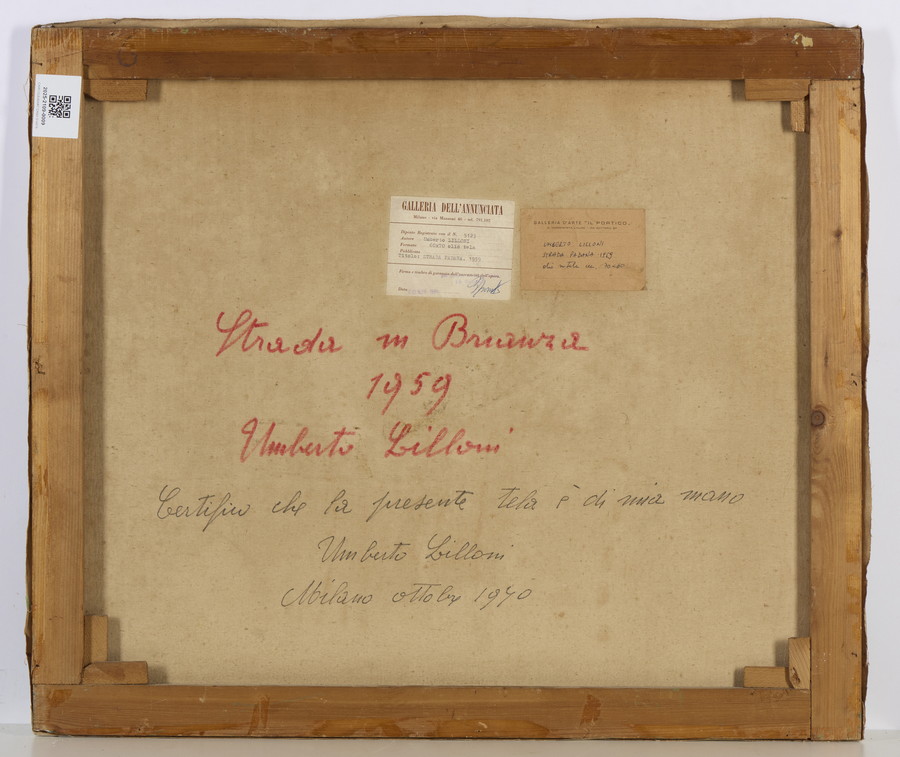 2025-2105-0059
GALLERIA DELL'ANNUNCIATA
Milano - via Manzoni 46 - tel.
Dipinto Registrato con il N.
Autore Umberto LILLONI
Formato OLIO alla tela
Pubblicato
Titolo: STRADA PADANA, 1959
Firma e timbro di
Data
GALLERIA D'ARTE "IL PORTICO"
UMBERTO LILLONI
STRADA PADANA 1959
olio su tela cm.
Strada in Brianza
1959
Umberto Lilloni
Certifico che la presente tela è di mia mano
Umberto Lilloni
Milano ottobre 1970